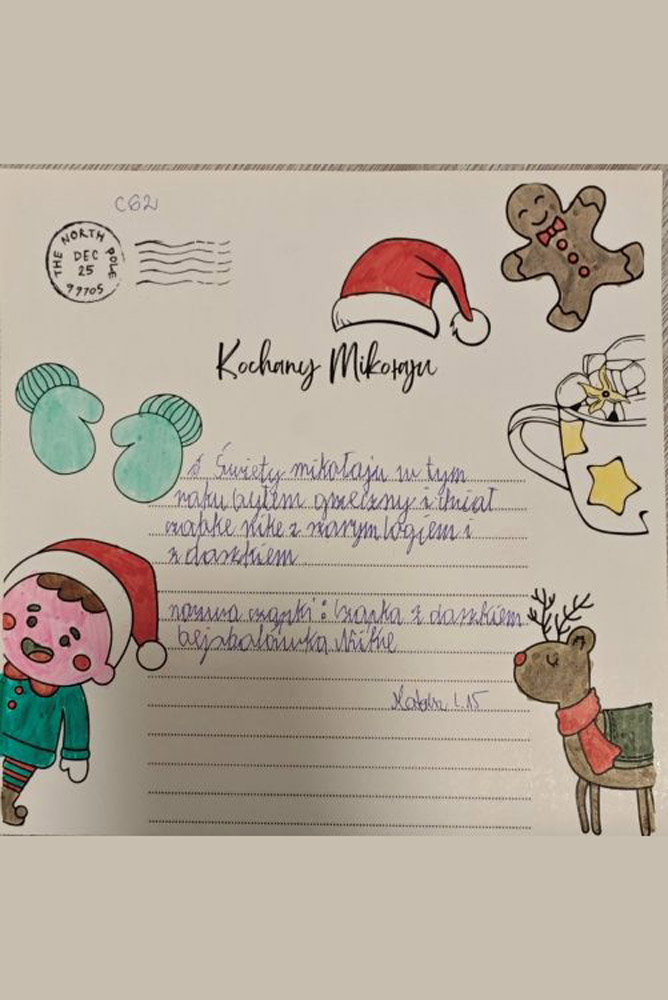 C62
THE NORTH POLE
DEC
25
99705
Kochany Mikołaju
Święty mikołaju w tym
roku byłem grzeczny i chciał
czapke nike z szarym logiem i
z daszkiem
nazwa czapki : Czapka z daszkiem
bejzbolówka Nike
l. 15